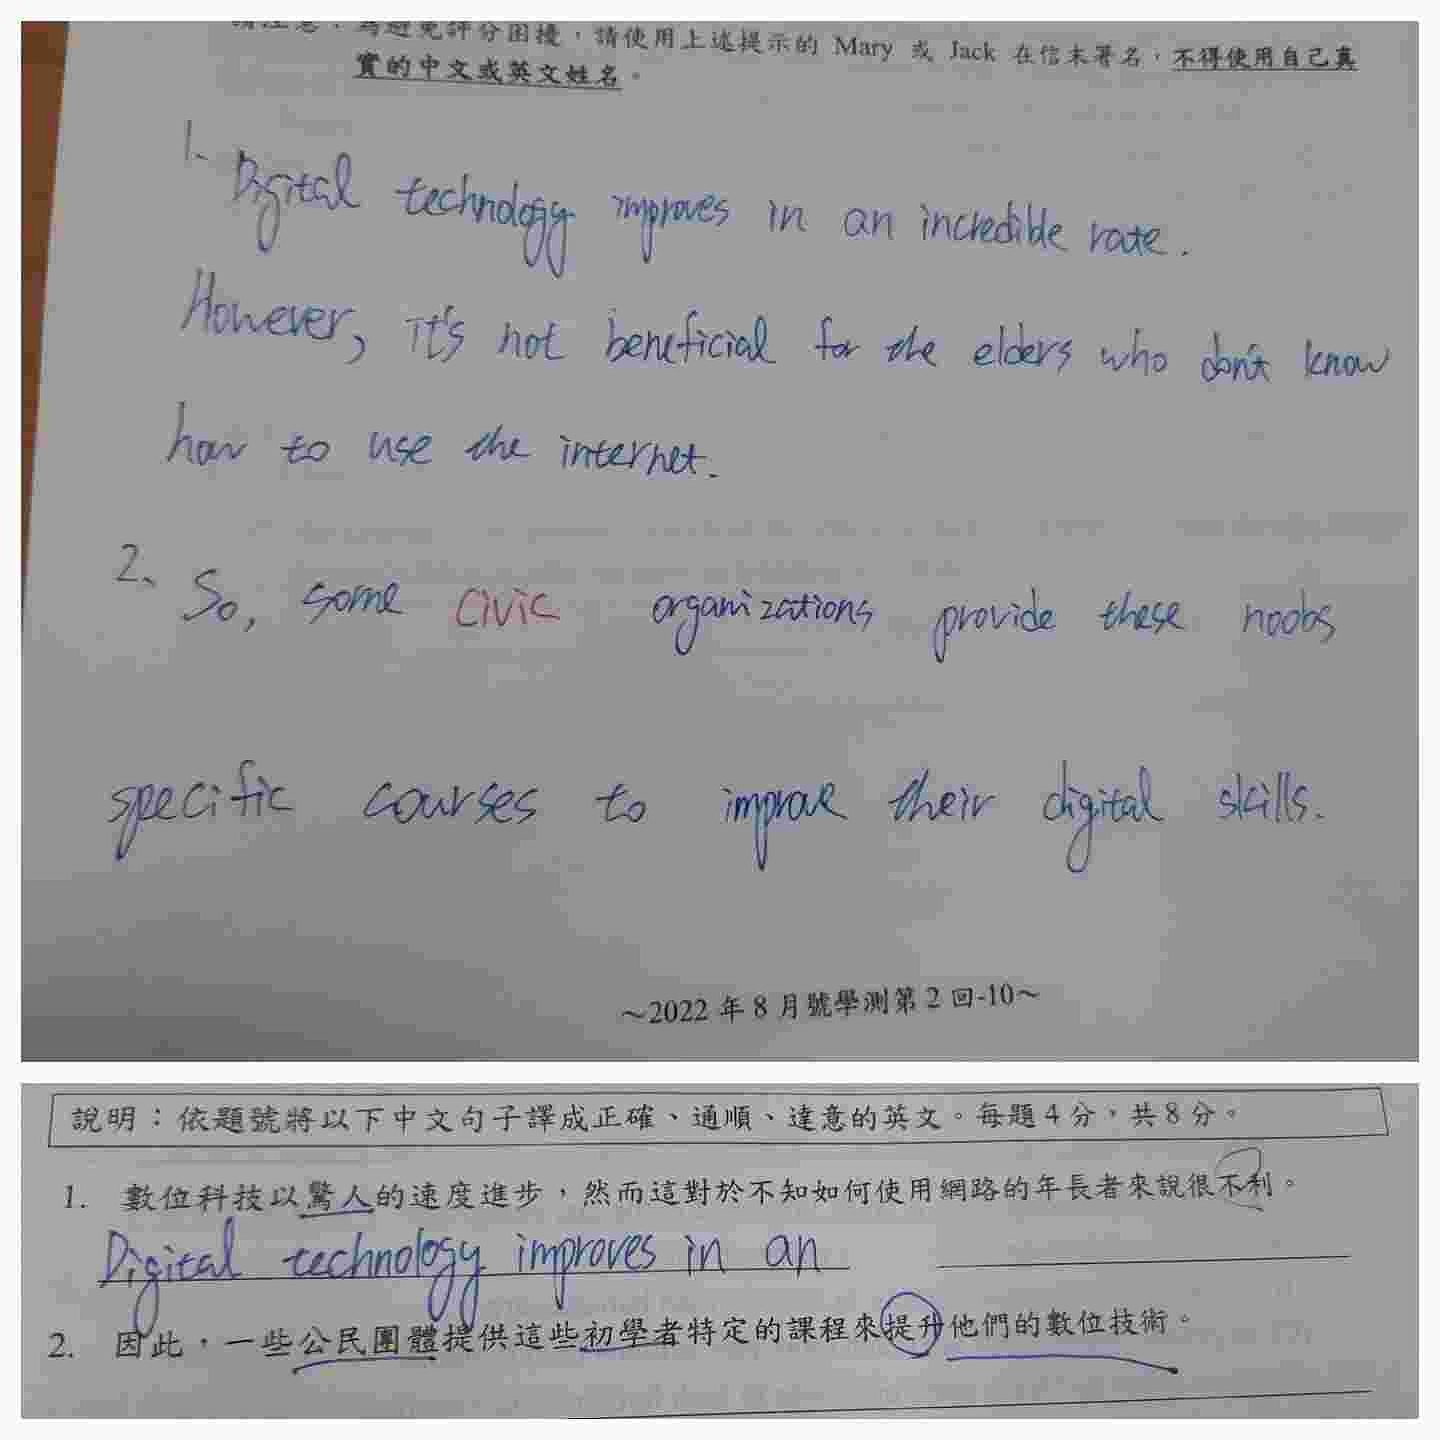 請注意：為避免評分困擾，請使用上述提示的 Mary 或 Jack 在信末署名，不得使用自己真
實的中文或英文姓名。
1. Digital technology improves in an incredible rate.
However, it's not beneficial for the elders who don't know
how to use the internet.
2、So, some civic organizations provide these noobs
specific courses to improve their digital skills.
～2022 年 8 月號學測第 2 回-10～
說明：依題號將以下中文句子譯成正確、通順、達意的英文。每題 4 分，共 8 分。
1. 數位科技以驚人的速度進步，然而這對於不知如何使用網路的年長者來說很不利。
Digital technology improves in an
2. 因此，一些公民團體提供這些初學者特定的課程來提升他們的數位技術。